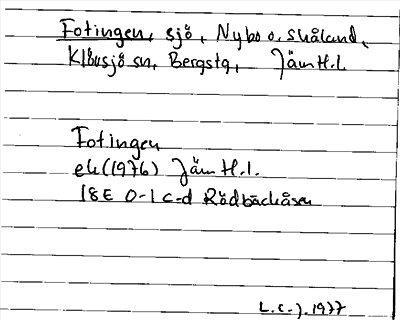 Fotingen, sjö, Nybo o. Skåland,
Klövsjö sn, Bergstg, Jämt. l.
Fotingen
ek (1976) Jämt. l.
18E 0-1 c-d Rödbäckåsen
L.C.J. 1977